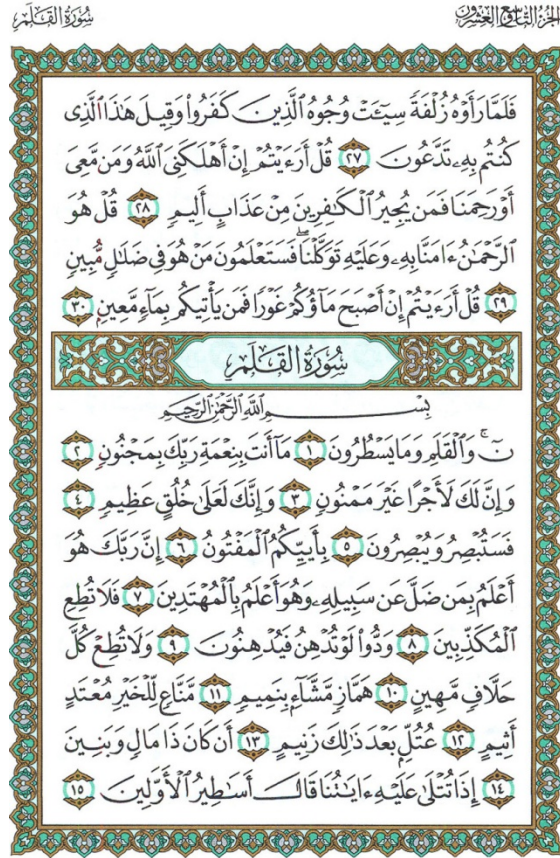 الجزء التاسع والعشرون
سورة القلم
فَلَمَّا رَأَوْهُ زُلْفَةً سِيٓـَٔتْ وُجُوهُ ٱلَّذِينَ كَفَرُوا۟ وَقِيلَ هَٰذَا ٱلَّذِى
كُنتُم بِهِۦ تَدَّعُونَ ٢٧ قُلْ أَرَءَيْتُمْ إِنْ أَهْلَكَنِىَ ٱللَّهُ وَمَن مَّعِىَ
أَوْ رَحِمَنَا فَمَن يُجِيرُ ٱلْكَٰفِرِينَ مِنْ عَذَابٍ أَلِيمٍ ٢٨ قُلْ هُوَ
ٱلرَّحْمَٰنُ ءَامَنَّا بِهِۦ وَعَلَيْهِ تَوَكَّلْنَا ۖ فَسَتَعْلَمُونَ مَنْ هُوَ فِى ضَلَٰلٍ مُّبِينٍ
٢٩ قُلْ أَرَءَيْتُمْ إِنْ أَصْبَحَ مَآؤُكُمْ غَوْرًا فَمَن يَأْتِيكُم بِمَآءٍ مَّعِينٍۭ ٣٠
سُورَةُ القَلَمِ
بِسْمِ ٱللَّهِ ٱلرَّحْمَٰنِ ٱلرَّحِيمِ
نٓ ۚ وَٱلْقَلَمِ وَمَا يَسْطُرُونَ ١ مَآ أَنتَ بِنِعْمَةِ رَبِّكَ بِمَجْنُونٍ ٢
وَإِنَّ لَكَ لَأَجْرًا غَيْرَ مَمْنُونٍ ٣ وَإِنَّكَ لَعَلَىٰ خُلُقٍ عَظِيمٍ ٤
فَسَتُبْصِرُ وَيُبْصِرُونَ ٥ بِأَييِّكُمُ ٱلْمَفْتُونُ ٦ إِنَّ رَبَّكَ هُوَ
أَعْلَمُ بِمَن ضَلَّ عَن سَبِيلِهِۦ وَهُوَ أَعْلَمُ بِٱلْمُهْتَدِينَ ٧ فَلَا تُطِعِ
ٱلْمُكَذِّبِينَ ٨ وَدُّوا۟ لَوْ تُدْهِنُ فَيُدْهِنُونَ ٩ وَلَا تُطِعْ كُلَّ
حَلَّافٍ مَّهِينٍ ١٠ هَمَّازٍ مَّشَّآءٍۭ بِنَمِيمٍ ١١ مَّنَّاعٍ لِّلْخَيْرِ مُعْتَدٍ
أَثِيمٍ ١٢ عُتُلٍّۭ بَعْدَ ذَٰلِكَ زَنِيمٍ ١٣ أَن كَانَ ذَا مَالٍ وَبَنِينَ
١٤ إِذَا تُتْلَىٰ عَلَيْهِ ءَايَٰتُنَا قَالَ أَسَٰطِيرُ ٱلْأَوَّلِينَ ١٥